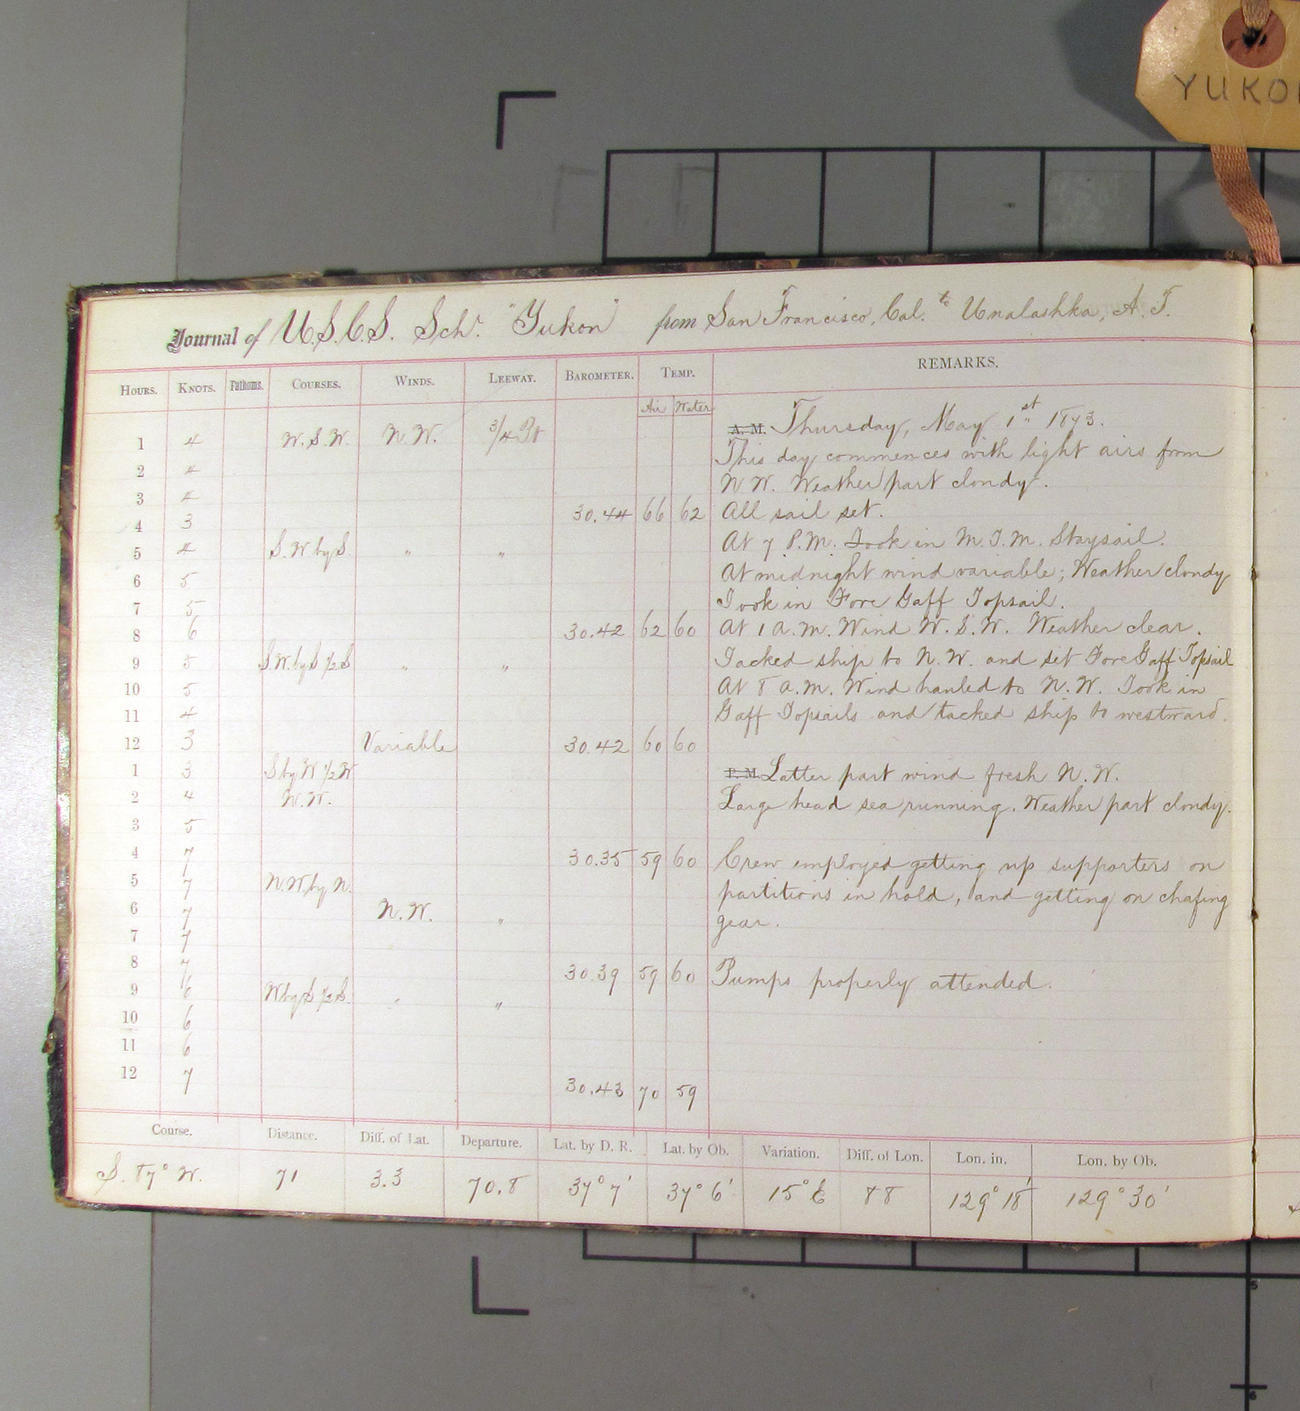 YUKO
Journal of U.S.C.S. Schr. "Yukon" from San Francisco, Cal. to Unalashka, A. T.
HOURS. KNOTS. Fathoms. COURSES. WINDS. LEEWAY. BAROMETER. TEMP. REMARKS.
Air Water
A. M. Thursday, May 1st 1873.
1 4 W. S. W. N. W. 3/4 Pt
This day commences with light airs from
2 4
N W. Weather part cloudy.
3 4
4 3 30.44 66 62 All sail set.
5 4 S. W by S. " "
At 7 P.M. Took in M. T. M. Staysail.
6 5
At midnight wind variable; Weather cloudy
7 5
Took in Fore Gaff Topsail.
8 6 30.42 62 60 At 1 A.M. Wind W. S. W. Weather clear.
9 5 S W. by S 1/2 S " "
Tacked ship to N. W. and set Fore Gaff Topsail
10 5
At 8 A.M. Wind hauled to N. W. Took in
11 4
Gaff Topsails and tacked ship to westward.
12 3 Variable 30.42 60 60
1 3 S by W 1/2 W
P. M. Latter part wind fresh N. W.
2 4 N. W.
Large head sea running. Weather part cloudy.
3 5
4 7 30.35 59 60 Crew employed getting up supporters on
5 7 N. W by N.
partitions in hold, and getting on chafing
6 7 N. W. "
gear.
7 7
8 7 30.39 59 60 Pumps properly attended.
9 6 W by S 1/2 S. " "
10 6
11 6
12 7 30.43 70 59
Course. Distance. Diff. of Lat. Departure. Lat. by D. R. Lat. by Ob. Variation. Diff. of Lon. Lon. in. Lon. by Ob.
S. 87° W. 71 3.3 70.8 37° 7' 37° 6' 15° E 88 129° 18' 129° 30'
5
6